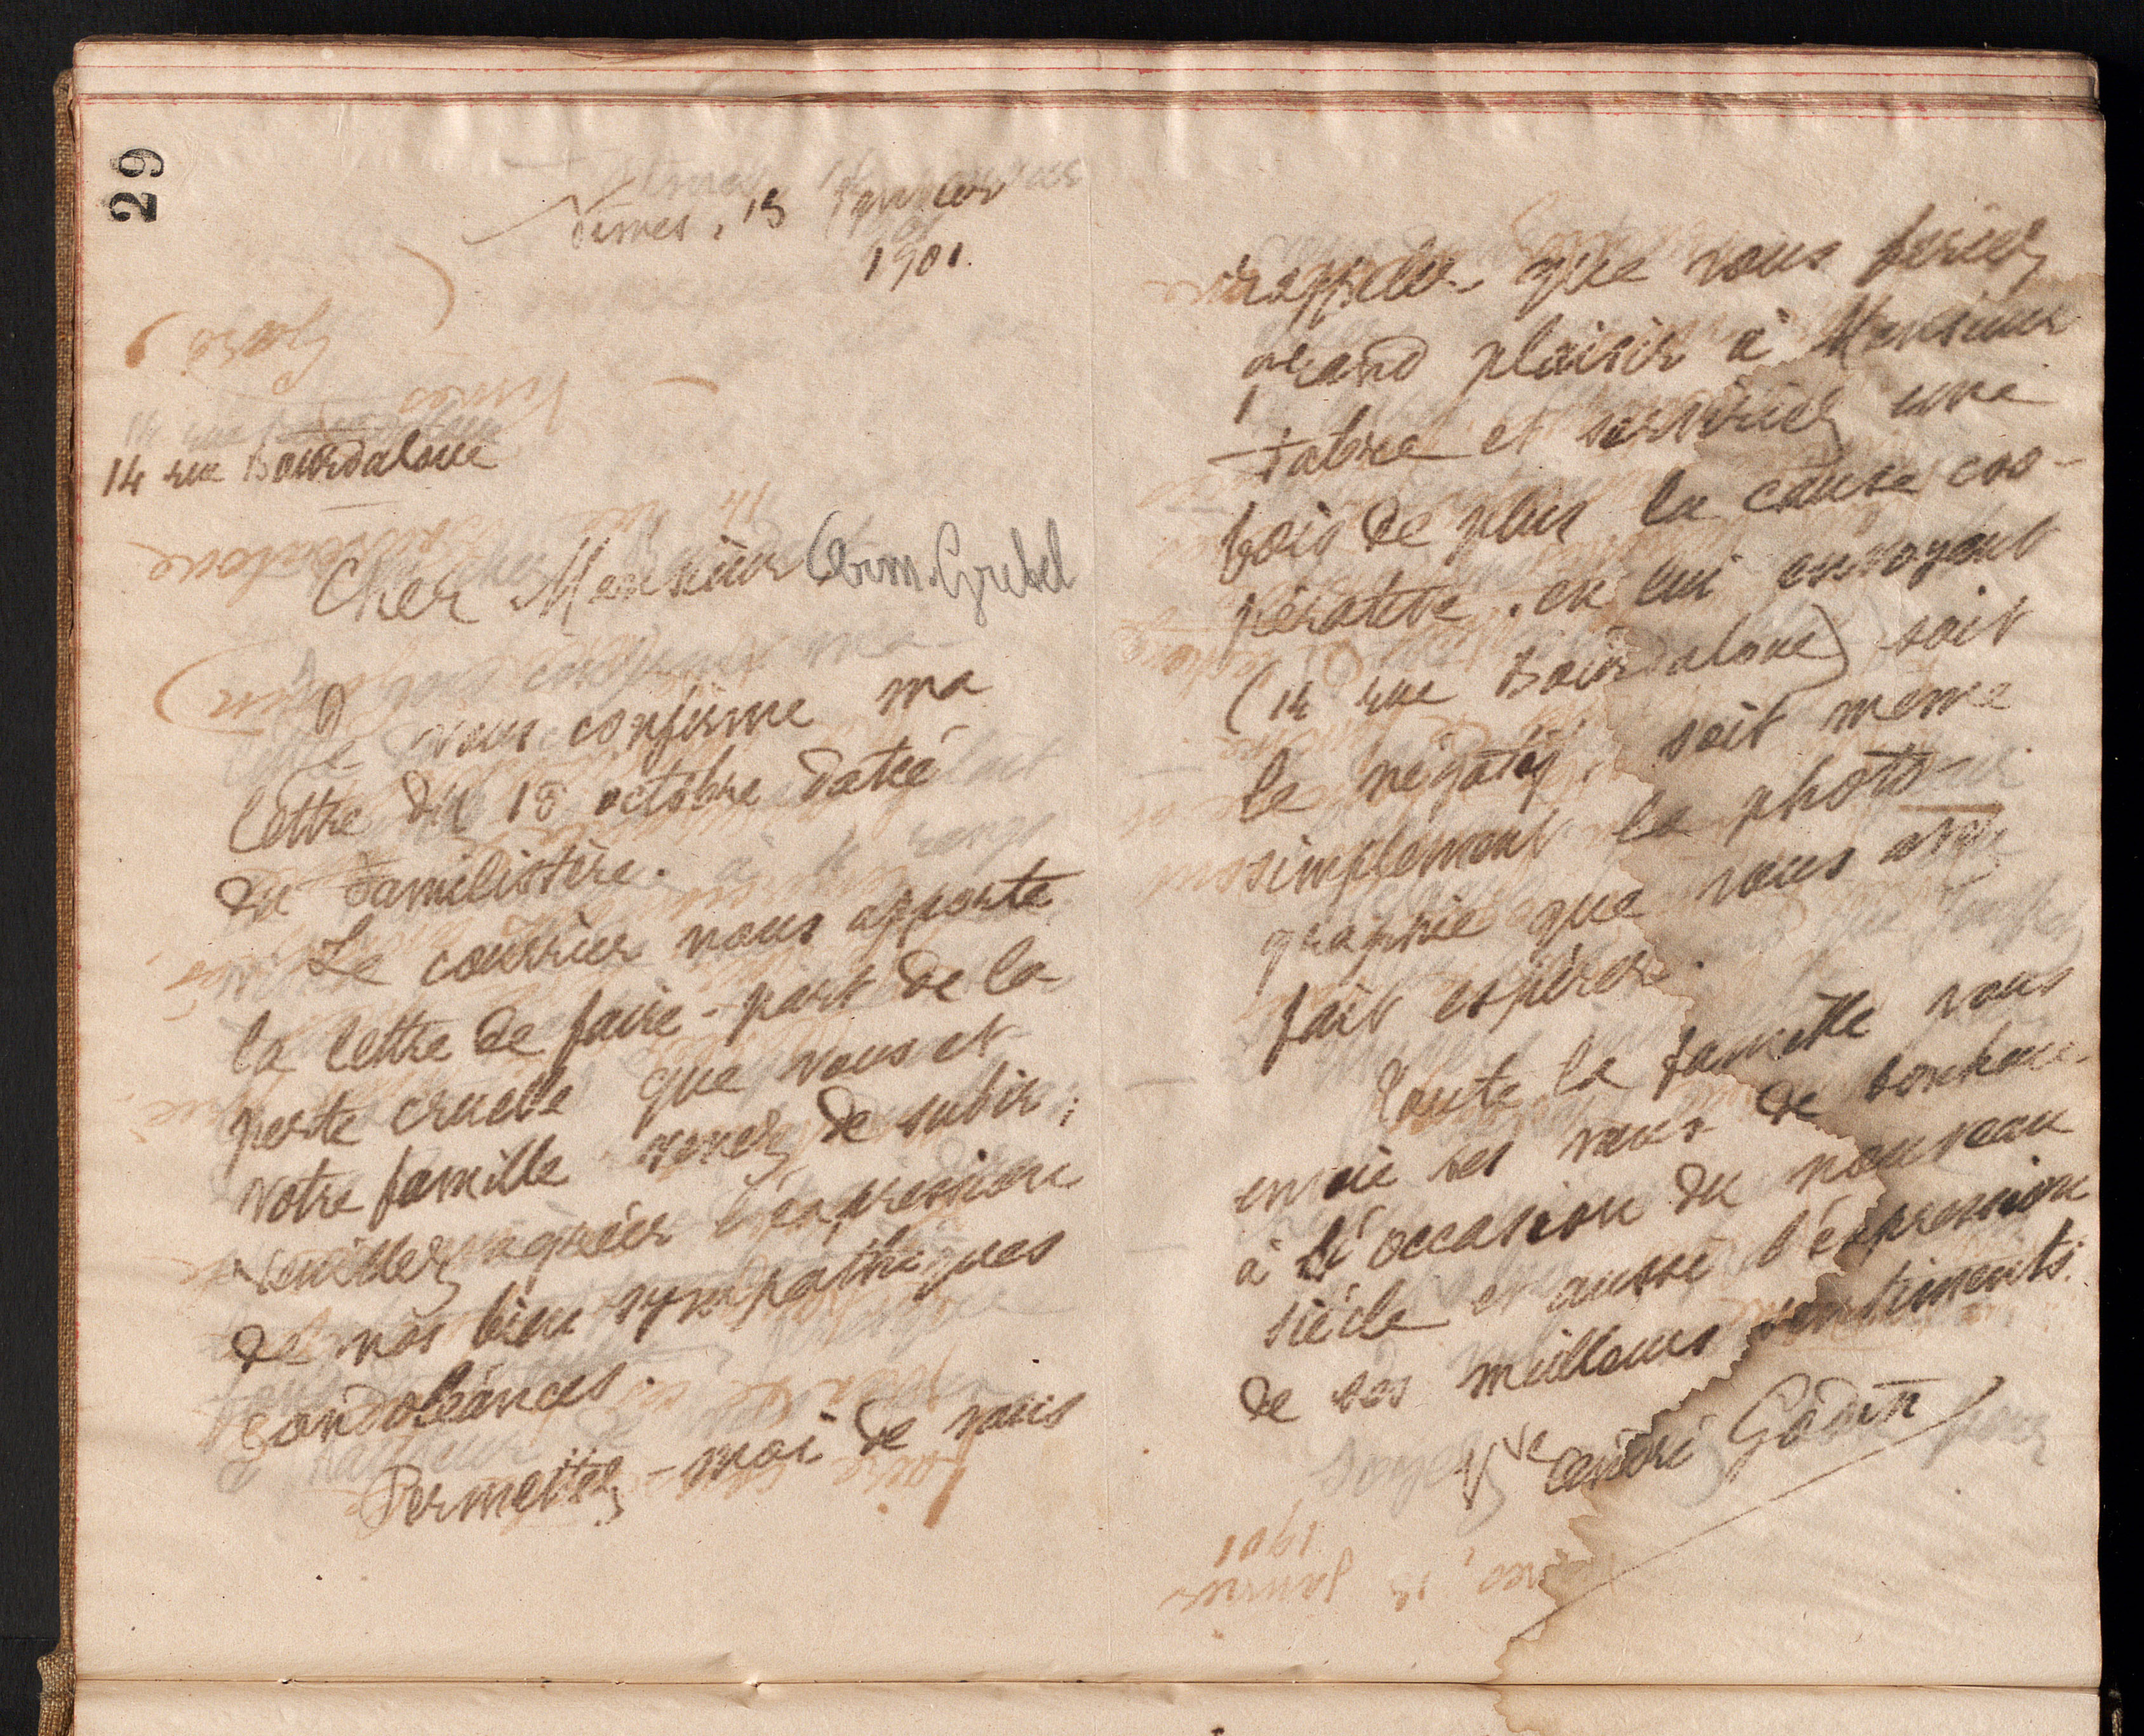 29
Nîmes, 15 Janvier
1901.
14 rue Bourdaloue
Cher Monsieur Arm. Grebel
Je vous confirme ma
lettre du 18 octobre datée
du Familistère.
Le courrier nous apporte
la lettre de faire-part de la
perte cruelle que vous et
votre famille venez de subir ;
veuillez agréer l'expression
de nos bien sympathiques
condoléances.
Permettez-moi de vous
rappeler que vous feriez
grand plaisir à Monsieur
Fabre et serviriez une
fois de plus la cause coo-
pérative, en lui envoyant
(14 rue Bourdaloue) soit
le négatif, soit même
simplement la photo-
graphie que vous avez
fait espérer.
Toute la famille vous
envoie ses vœux de bonheur
à l'occasion du nouveau
siècle et aussi l'expression
de ses meilleurs sentiments.
Vve André Godin